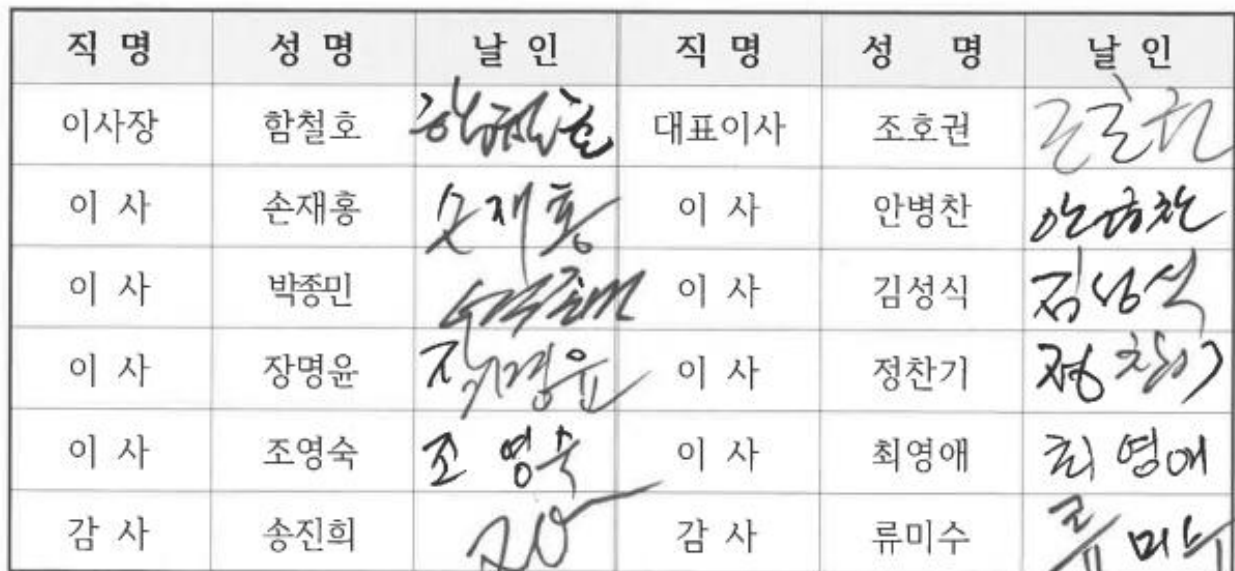 직 명 성 명 날 인 직 명 성 명 날 인
이사장 함철호 함철호 대표이사 조호권 조호권
이 사 손재홍 손재홍 이 사 안병찬 안병찬
이 사 박종민 박종민 이 사 김성식 김성식
이 사 장명윤 장명윤 이 사 정찬기 정찬기
이 사 조영숙 조영숙 이 사 최영애 최영애
감 사 송진희 감 사 류미수 류미수